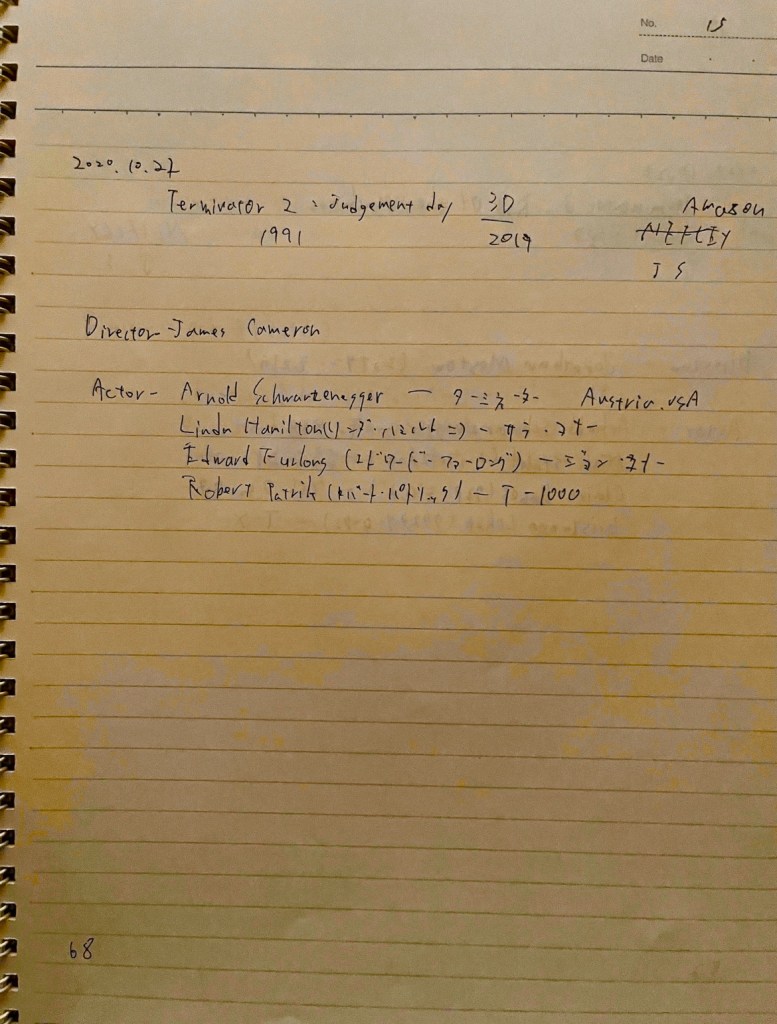 No. 15
Date
2020.10.27
Terminator 2 : Judgement day 3D Amason
1991 2019
J S
Director - James Cameron
Actor - Arnold Schwartenegger — ターミネーター Austria. USA
Linda Hamilton (リンダ・ハミルトン) - サラ・コナー
Edward Furlong (エドワード・ファーロング) - ジョン・コナー
Robert Patrik (ロバート・パトリック) - T-1000
68